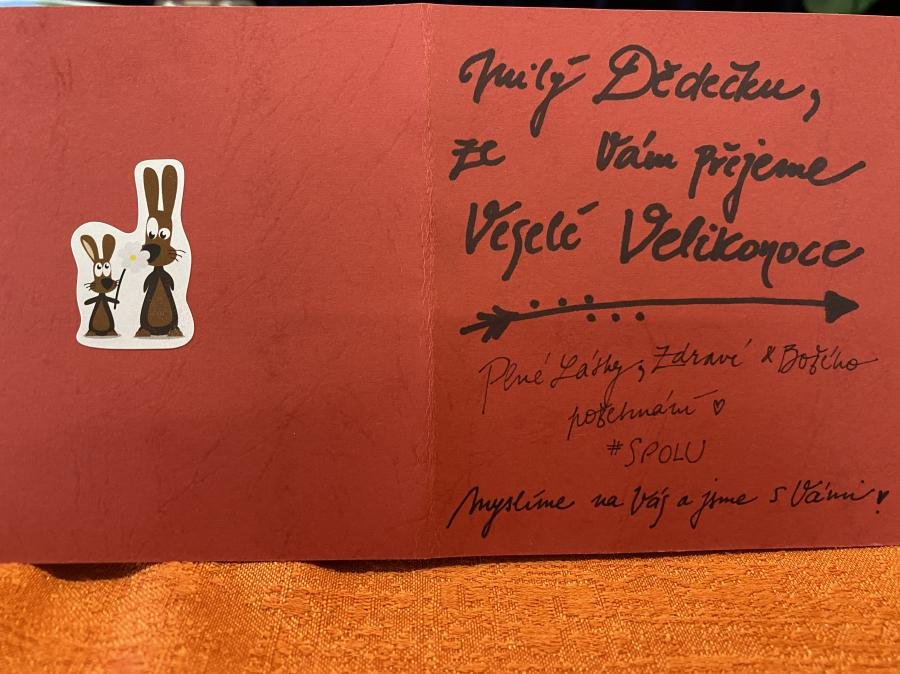 Milý Dědečku,
ze Vám přejeme
Veselé Velikonoce
Plné Lásky, Zdraví & Božího
požehnání ♡
#SPOLU
Myslíme na Vás a jsme s Vámi ♥